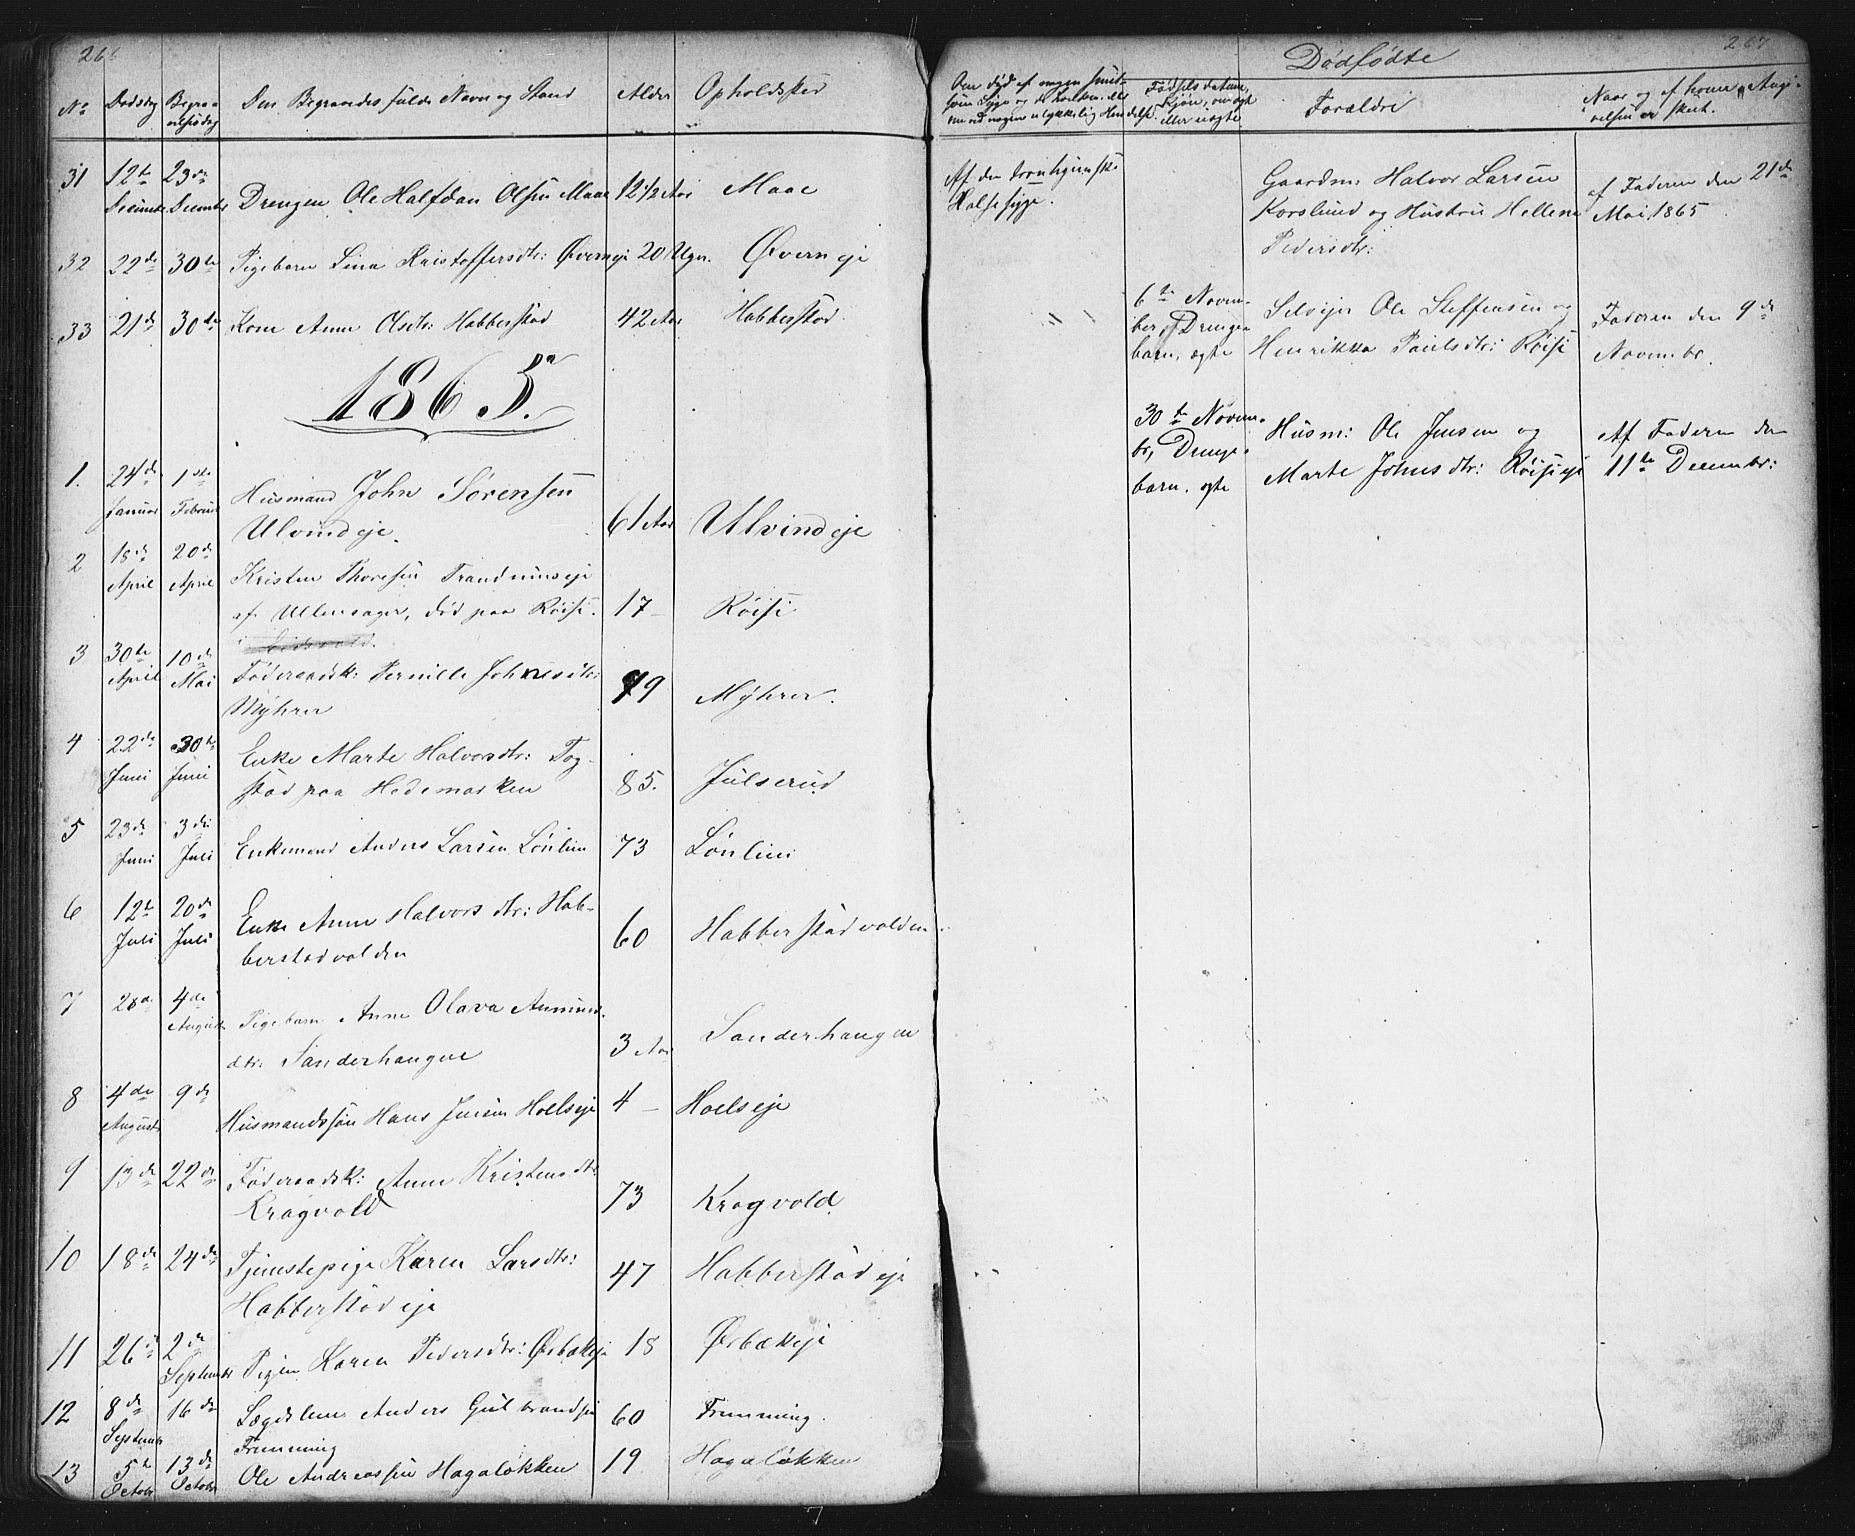 266
No Dødsdag Begravelsesdag Den Begravedes fulde Navn og Stand Alder Opholdssted
31 12te Decembr 23de Decembr Drengen Ole Halfdan Olsen Maae 12 1/2 Aar Maae
32 22de 30te Pigebarn Lina Kristoffersdtr: Øverneje 20 Uger. Øverneje
33 21de 30te Kone Anne Olsdtr: Habberstad 42 Aar Habberstad
1865.
1. 24de Januar 1ste Februar Husmand John Sørensen
Ulvindeje. 61 Aar Ulvindeje
2 18de April 20de April Kristen Thoresen Trandumseje
af Ullensager, død paa Røise 17 - Røise
i Eidsvold.
3 30te April 10de Mai Føderaadsk: Pernille Johnesdtr:
Myhrer 79 Myhrer.
4 22de Juni 30te Juni Enke Marte Halvorsdtr: Tog-
stad paa Hedemarken 85. Julserud
5 23de Juni 3die Juli Enkemand Anders Larsen Lønlien 73 Lønlien
6 12te Juli 20de Juli Enke Anne Halvorsdtr: Hab-
berstadvolden 60 Habberstadvolden
7 28de 4de August Pigebarn Anne Olava Anmund-
dtr: Sanderhaugen 3 Aar Sanderhaugen
8 4de August 9de Husmandssøn Hans Jensen Hoelseje 4 - Hoelseje
9 13de 22de Føderaadsk: Anne Kristensdtr:
Kragvold 73 Kragvold
10 18de 24de Tjenestepige Karen Larsdtr:
Habberstadeje 47 Habberstadeje
11 26de 2den Septembr Pigen Karen Pedersdtr: Ørbækeje 18 Ørbækeje
12 8de Septembr 16de Lægdslem Anders Gulbrandsen
Frenning 60 Frenning.
13 5te Octobr 13de Octobr Ole Andreassen Hagaløkken 19 Hagaløkken
267
Dødfødte
Om død af nogen smit-
som Syge og da hvilken, eller
om ved nogen ulykkelig Hændelse.
Fødselsdatum, Kjøn, om ægte eller uægte
Forældre
Naar og af hvem Angi-
velsen er skeet.
Af den trondhjemske
Halsesyge.
Gaardm: Halvor Larsen
Korslund og Hustru Hellene
Pedersdtr:
af Faderen den 21de
Mai 1865
6te Novem-
ber, Drenge-
barn, ægte
Selvejer Ole Steffensen og
Henrikka Paulsdtr: Røise
Faderen den 9de
Novembr.
30te Novem-
br, Drenge-
barn. ægte
Husm: Ole Jensen og
Marte Johnsdtr: Røiseeje
Af Faderen den
11te Decembr: